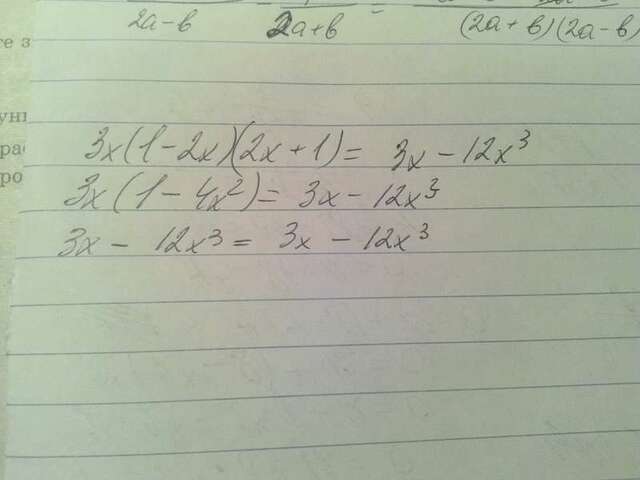 2a-b 2a+b = (2a+b)(2a-b)
те з
уни
рас
про
3x(1-2x)(2x+1)= 3x-12x³
3x(1-4x²)= 3x-12x³
3x - 12x³ = 3x - 12x³